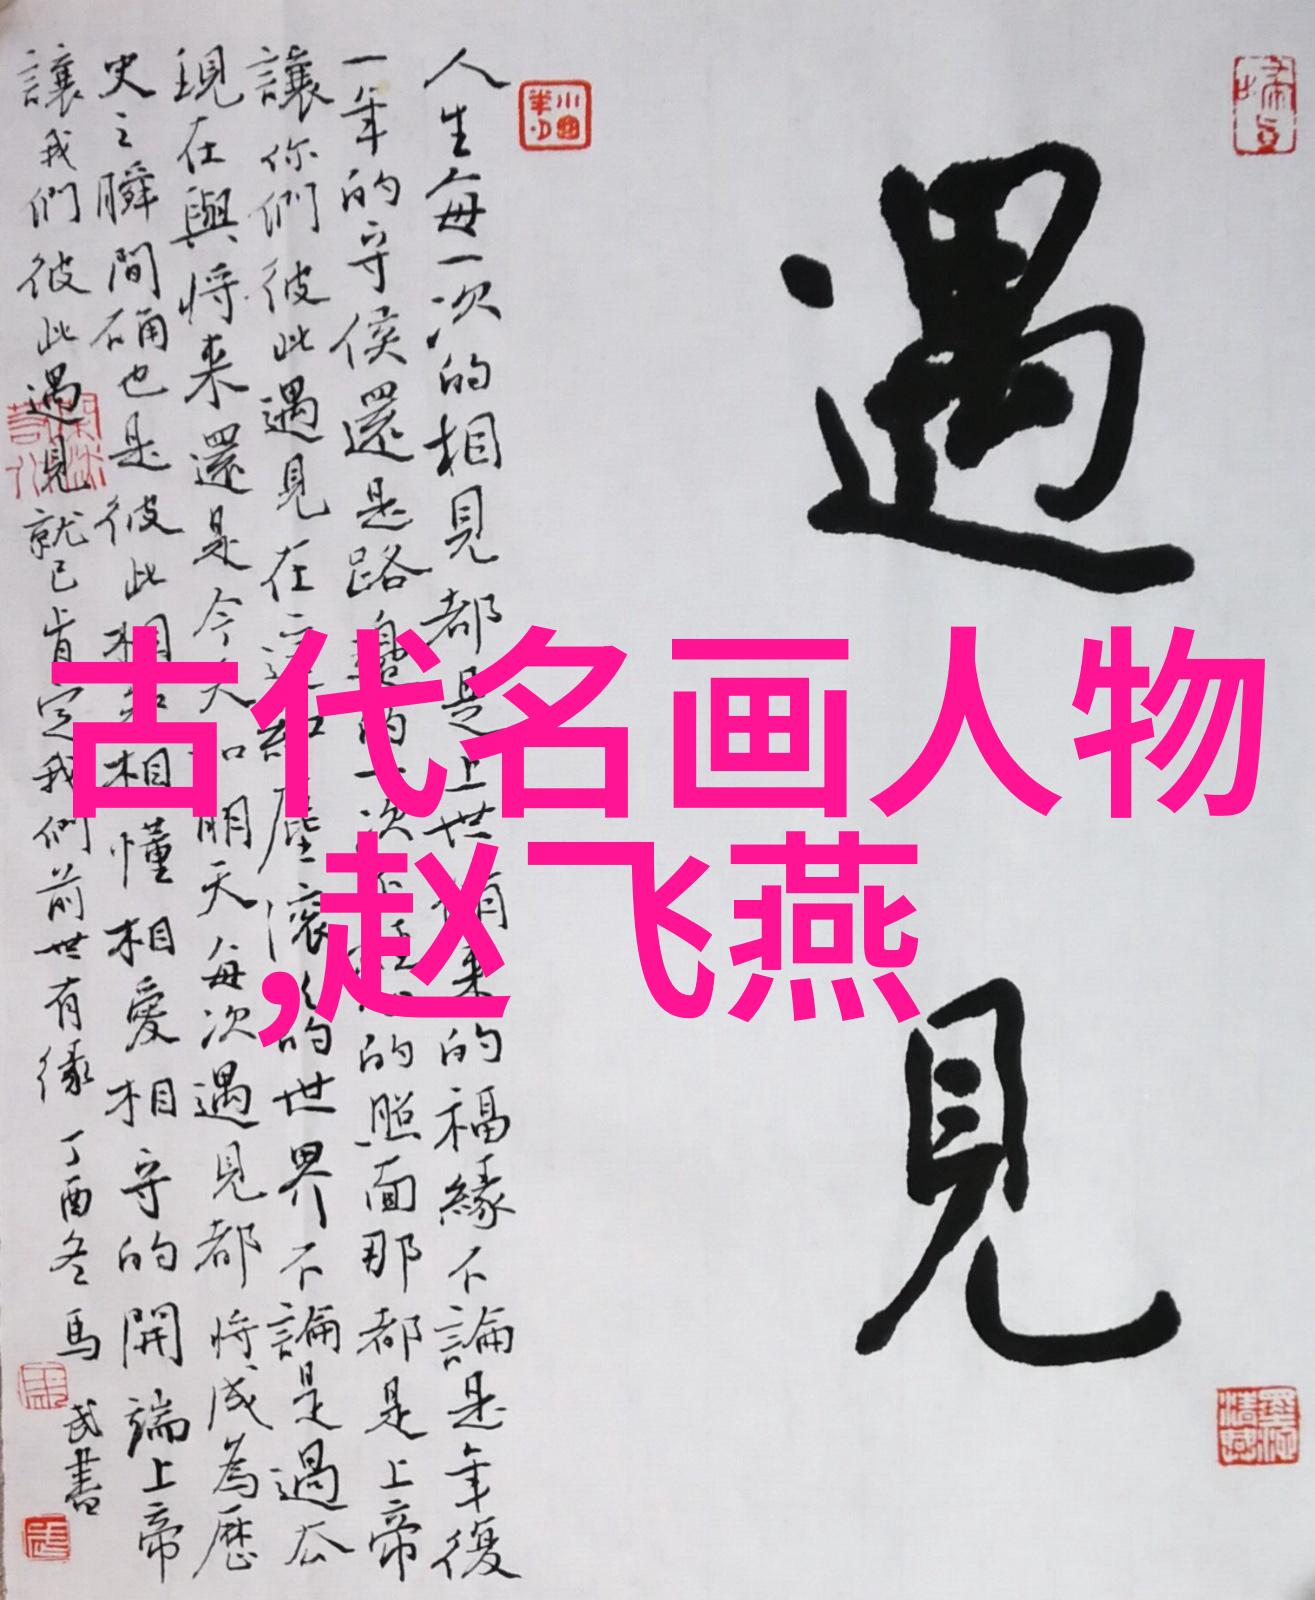 遇見
人生每一次的相見都是上世修来的福緣不論是年復
一年的守侯還是路的一次不的照面那都是上帝
讓你們彼此遇見在這紅塵滚滚的世界不論是過去
現在與將来還是今天和明天每次遇見都將成為歷
史之瞬間确也是彼此相知相懂相愛相守的開端上帝
讓我們彼此遇見就已肯定我們前世有缘
丁酉冬馬武書
古代名画人物
,赵飞燕